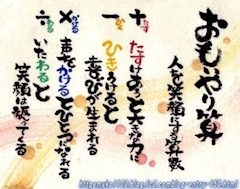 おもいやり算
人を笑顔にする算数
+たす
たすけあうと大きな力に
-ひく
ひきうけると
喜びが生まれる
×かける
声をかけるとひとつになれる
÷わる
いたわると
笑顔は返ってくる